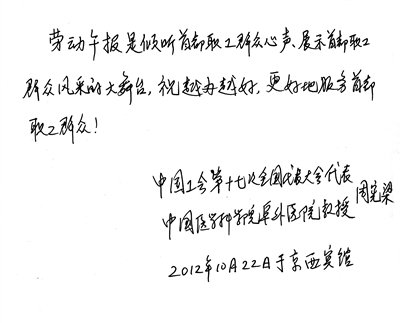 劳动午报是倾听首都职工群众心声、展示首都职工
群众风采的大舞台,祝越办越好,更好地服务首都
职工群众!
中国工会第十七次全国代表大会代表
中国医学科学院阜外医院教授 周宪梁
2012年10月22日于京西宾馆